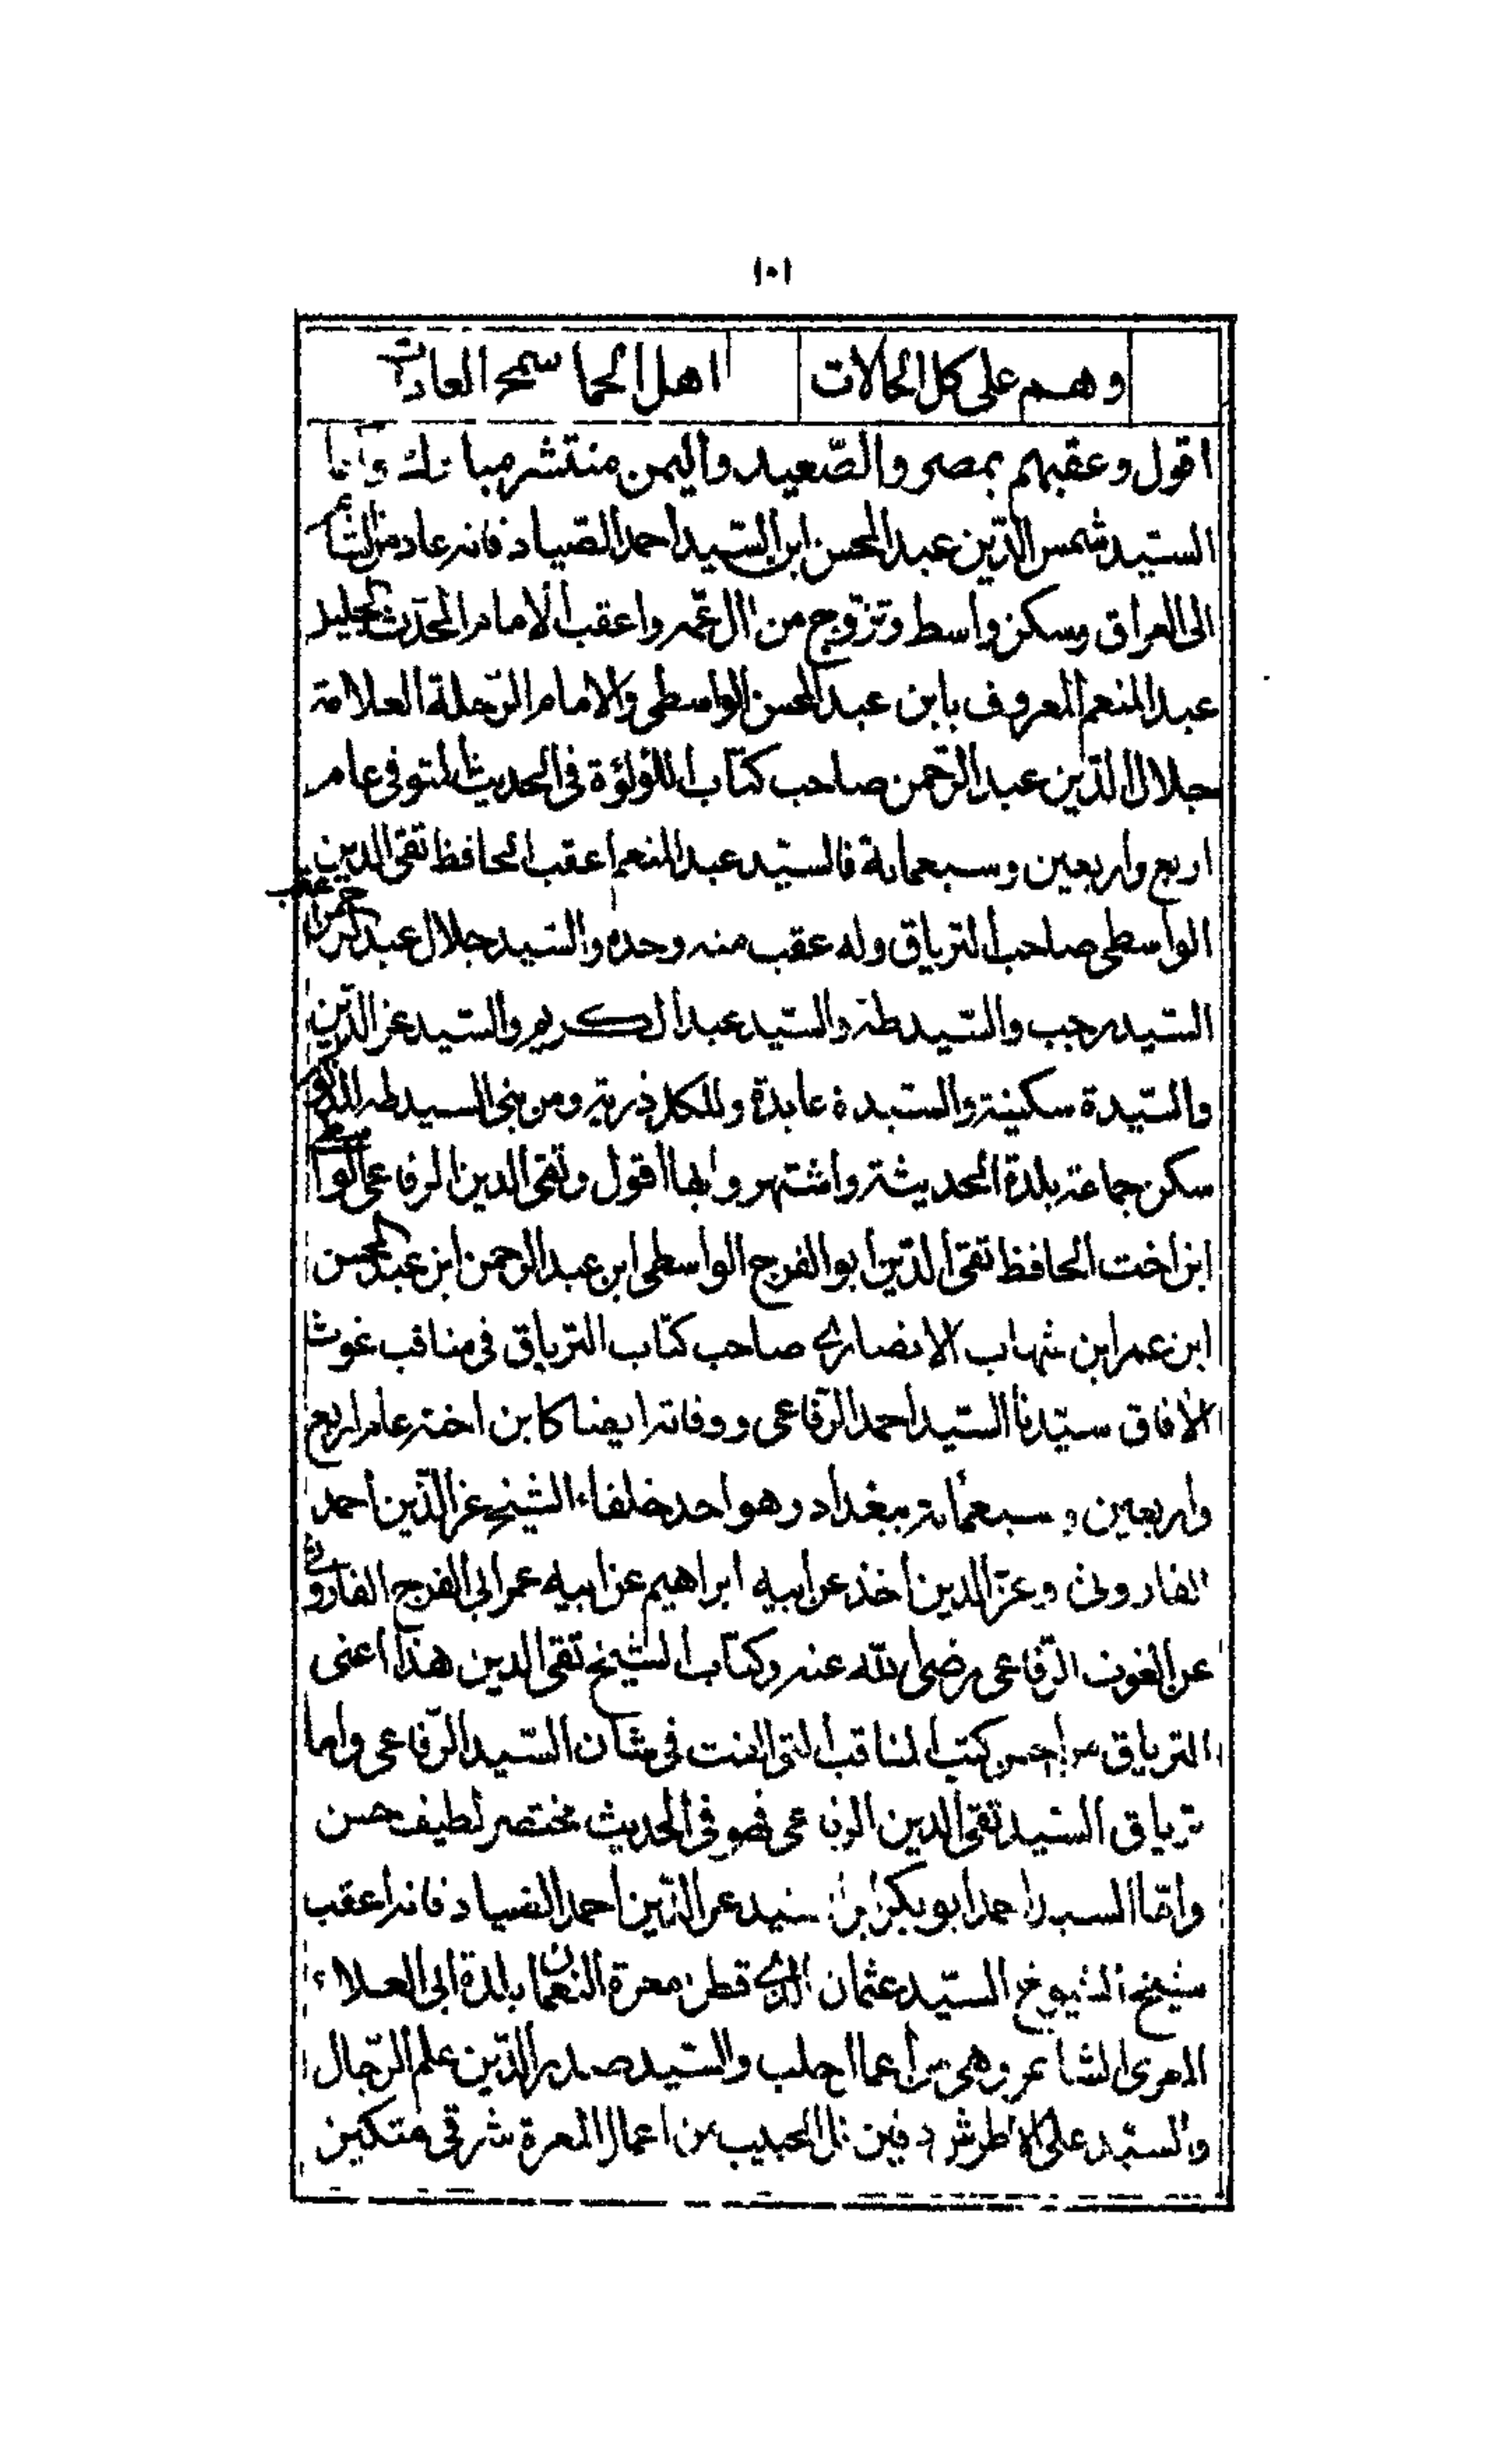 ١٠١
وهم على كل الحالات اهل الحما سمح العادات
اقول وعقبهم بمصر والصّعيد واليمن منتشر مبارك وامّا
السيّد شمس الدّين عبد المحسن ابن السّيد احمد الصّياد فانه عاد من الشام
الى العراق وسكن واسط وتزوّج من آل عمّه واعقب الامام المحدّث الجليل
عبد المنعم المعروف بابن عبد المحسن الواسطى والامام الرّحلة العلامة
جلال الدّين عبد الرّحمن صاحب كتاب اللؤلؤة فى الحديث المتوفى عام
اربع واربعين وسبعماية فالسيّد عبد المنعم اعقب الحافظ تقى الدين
الواسطى صاحب الترياق وله عقب منه وحده والسّيد جلال عبد الرحمن عقب
السّيد رجب والسّيد طه والسّيد عبد الكريم والسّيد عز الدّين
والسّيدة سكينة والسّيدة عابدة وللكل ذرية ومن بنى السيد طه المذكور
سكن جماعة بلدة الحديثة واشتهروا بها اقول وتقى الدين الرفاعى الواسطى
ابن اخت الحافظ تقى الدّين ابو الفرج الواسطى ابن عبد الرحمن ابن عبد المحسن
ابن عمر ابن شهاب الانصارى صاحب كتاب الترياق فى مناقب غوث
الآفاق سيّدنا السيّد احمد الرّفاعى ووفاته ايضا كابن اخته عام اربع
واربعين وسبعمأية ببغداد وهو احد خلفاء الشيخ عز الدّين احمد
الفاروثى وعزّ الدين اخذ عن ابيه ابراهيم عن ابيه عمر ابى الفرج الفاروثى
عن الغوث الرّفاعى رضى الله عنه وكتاب الشيخ تقى الدين هذا اعنى
الترياق من احسن كتب المناقب التى الفت فى شأن السّيد الرّفاعى واما
ترياق السّيد تقى الدين الرفاعى فهو فى الحديث مختصر لطيف حسن
وامّا السيد احمد ابو بكر ابن سيد عز الدّين احمد الصياد فانه اعقب
شيخ الشيوخ السّيد عثمان الذى قطن معرة النعمان بلدة ابى العلاء
المعرى الشاعر وهى من اعمال حلب والسّيد صدر الدّين علم الرّجال
والسّيد على الاطرش دفين تل الحبيب من اعمال المعرة شرقى متكين